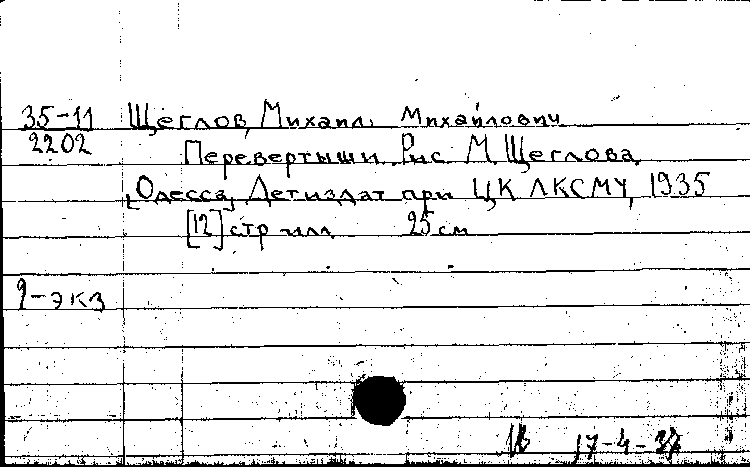 35-11 Щеглов, Михаил Михайлович
2202
Перевертыши. Рис. М. Щеглова.
[Одесса], Детиздат при ЦК ЛКСМУ, 1935
[12] стр. илл. 25 см.
-экз
17-4-37